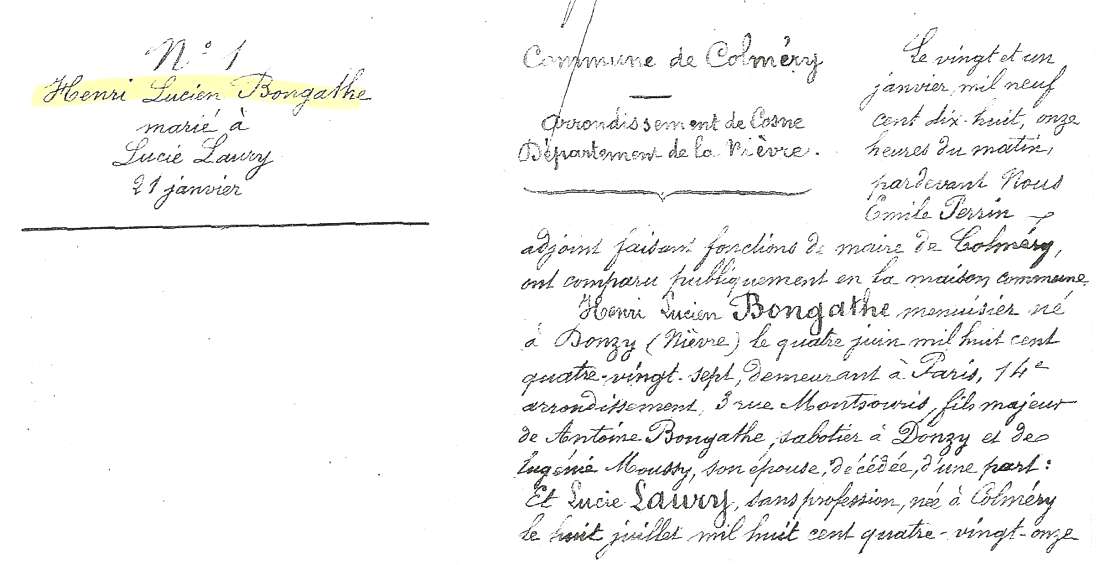 N° 1
Henri Lucien Bongathe
marié à
Lucie Laury
21 janvier
Commune de Colméry
Arrondissement de Cosne
Département de la Nièvre.
Le vingt et un
janvier mil neuf
cent dix-huit, onze
heures du matin,
pardevant Nous
Emile Perrin
adjoint faisant fonctions de maire de Colméry,
ont comparu publiquement en la maison commune
Henri Lucien Bongathe menuisier né
à Donzy (Nièvre) le quatre juin mil huit cent
quatre-vingt-sept, demeurant à Paris, 14e
arrondissement, 3 rue Montsouris, fils majeur
de Antoine Bongathe, sabotier à Donzy et de
Eugénie Moussy, son épouse, décédée, d'une part :
Et Lucie Laury, sans profession, née à Colméry
le huit juillet mil huit cent quatre-vingt-onze